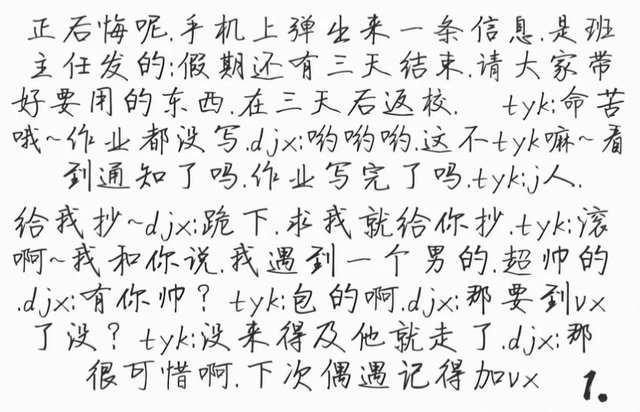 正后悔呢.手机上弹出来一条信息.是班
主任发的:假期还有三天结束.请大家带
好要用的东西.在三天后返校. tyk:命苦
哦~作业都没写.djx:哟哟哟.这不tyk嘛~看
到通知了吗.作业写完了吗.tyk:j人.
给我抄~djx:跪下.求我就给你抄.tyk:滚
啊~我和你说.我遇到一个男的.超帅的
.djx:有你帅? tyk:包的啊.djx:那要到vx
了没? tyk:没来得及他就走了.djx:那
很可惜啊.下次偶遇记得加vx 1.